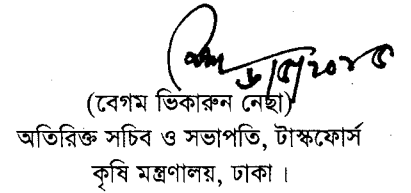 ৬/৫/২০১৫
(বেগম ভিকারুন নেছা)
অতিরিক্ত সচিব ও সভাপতি, টাস্কফোর্স
কৃষি মন্ত্রণালয়, ঢাকা ।